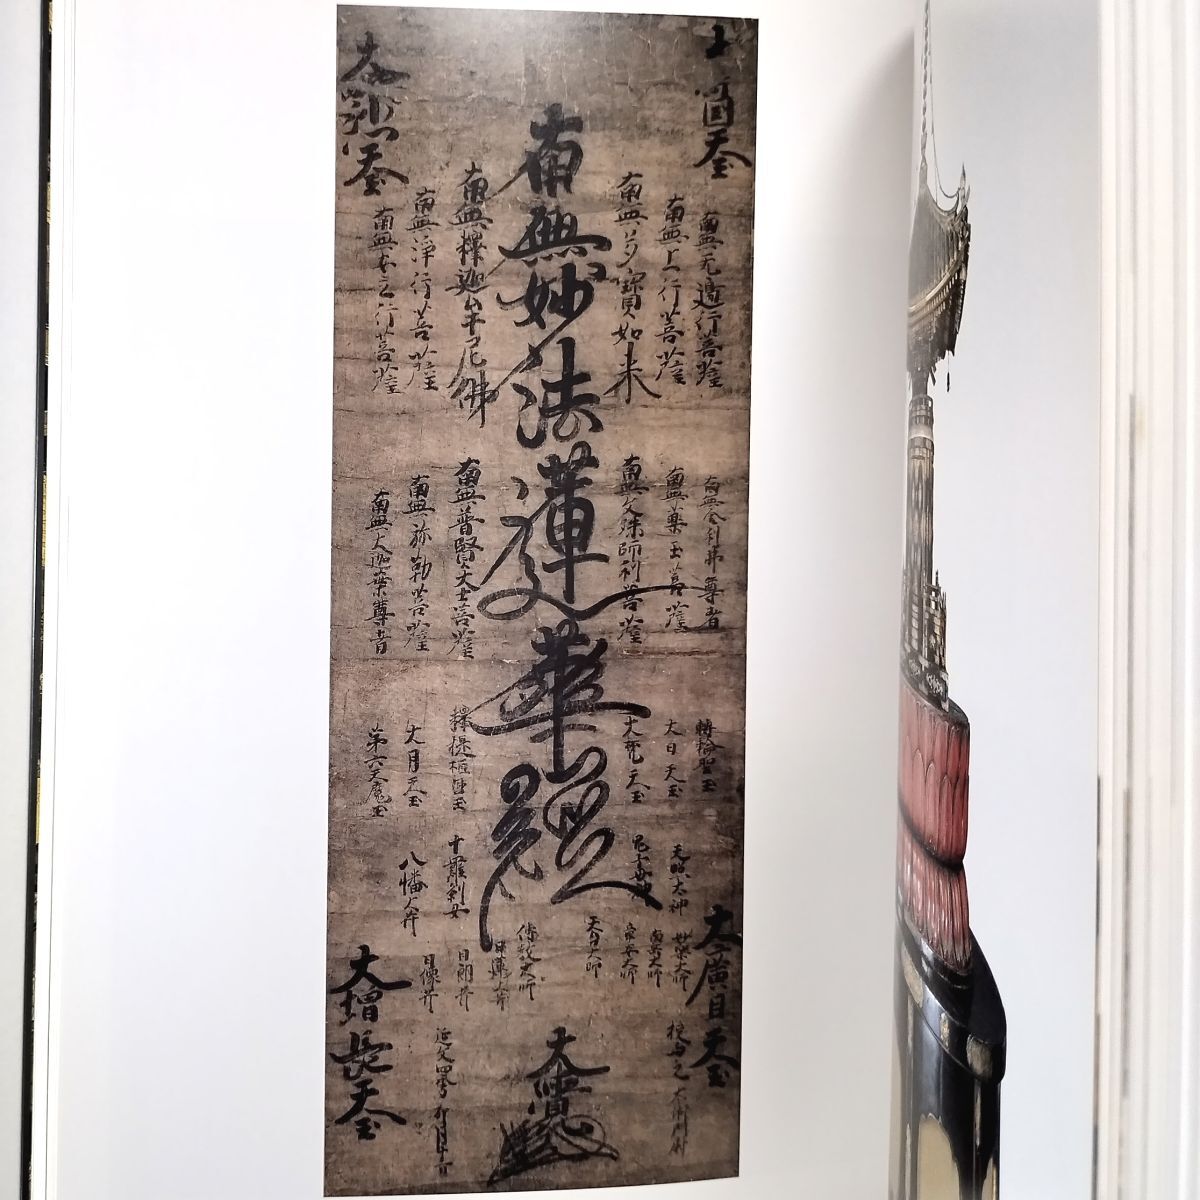 南無妙法蓮華経
南無无邊行菩薩
南無上行菩薩
南無多寳如来
南無釋迦牟尼佛
南無浄行菩薩
南無安立行菩薩
南無舎利弗尊者
南無薬王菩薩
南無文殊師利菩薩
南無普賢大士菩薩
南無弥勒菩薩
南無大迦葉尊者
轉輪聖王
大日天王
大梵天王
釋提桓因王
大月天王
第六天魔王
天照大神
鬼子母神
十羅刹女
八幡大菩薩
大廣目天王
妙楽大師
南岳大師
章安大師
天台大師
傳教大師
日蓮菩薩
日朗菩薩
日像菩薩
大増長天王
授与之
大覺
延文四年